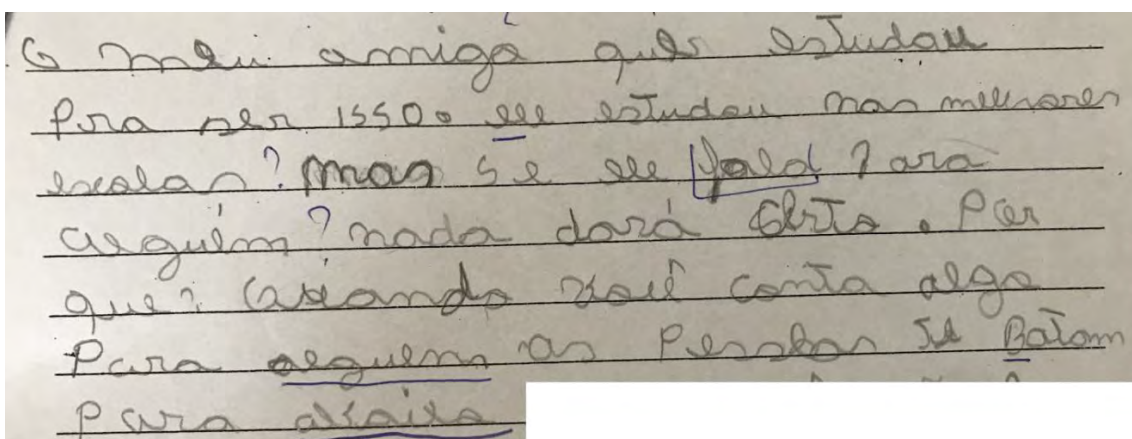 O meu amigo quer estudou
Pra ser isso. ele estudou nas melhores
escolas? mas se ele fala Para
alguém? nada dará certo. Por
que? Quando você conta algo
Para alguem as Pessoas te Botam
Para abaixo